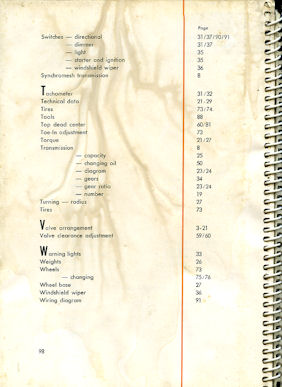 Page
Switches — directional 31/37/90/91
— dimmer 31/37
— light 35
— starter and ignition 35
— windshield wiper 36
Synchromesh transmission 8
Tachometer 31/32
Technical data 21-29
Tires 73/74
Tools 88
Top dead center 60/81
Toe-In adjustment 73
Torque 21/27
Transmission 8
— capacity 25
— changing oil 50
— diagram 23/24
— gears 34
— gear ratio 23/24
— number 19
Turning — radius 27
Tires 73
Valve arrangement 3-21
Valve clearance adjustment 59/60
Warning lights 33
Weights 26
Wheels 73
— changing 75/76
Wheel base 27
Windshield wiper 36
Wiring diagram 91
98